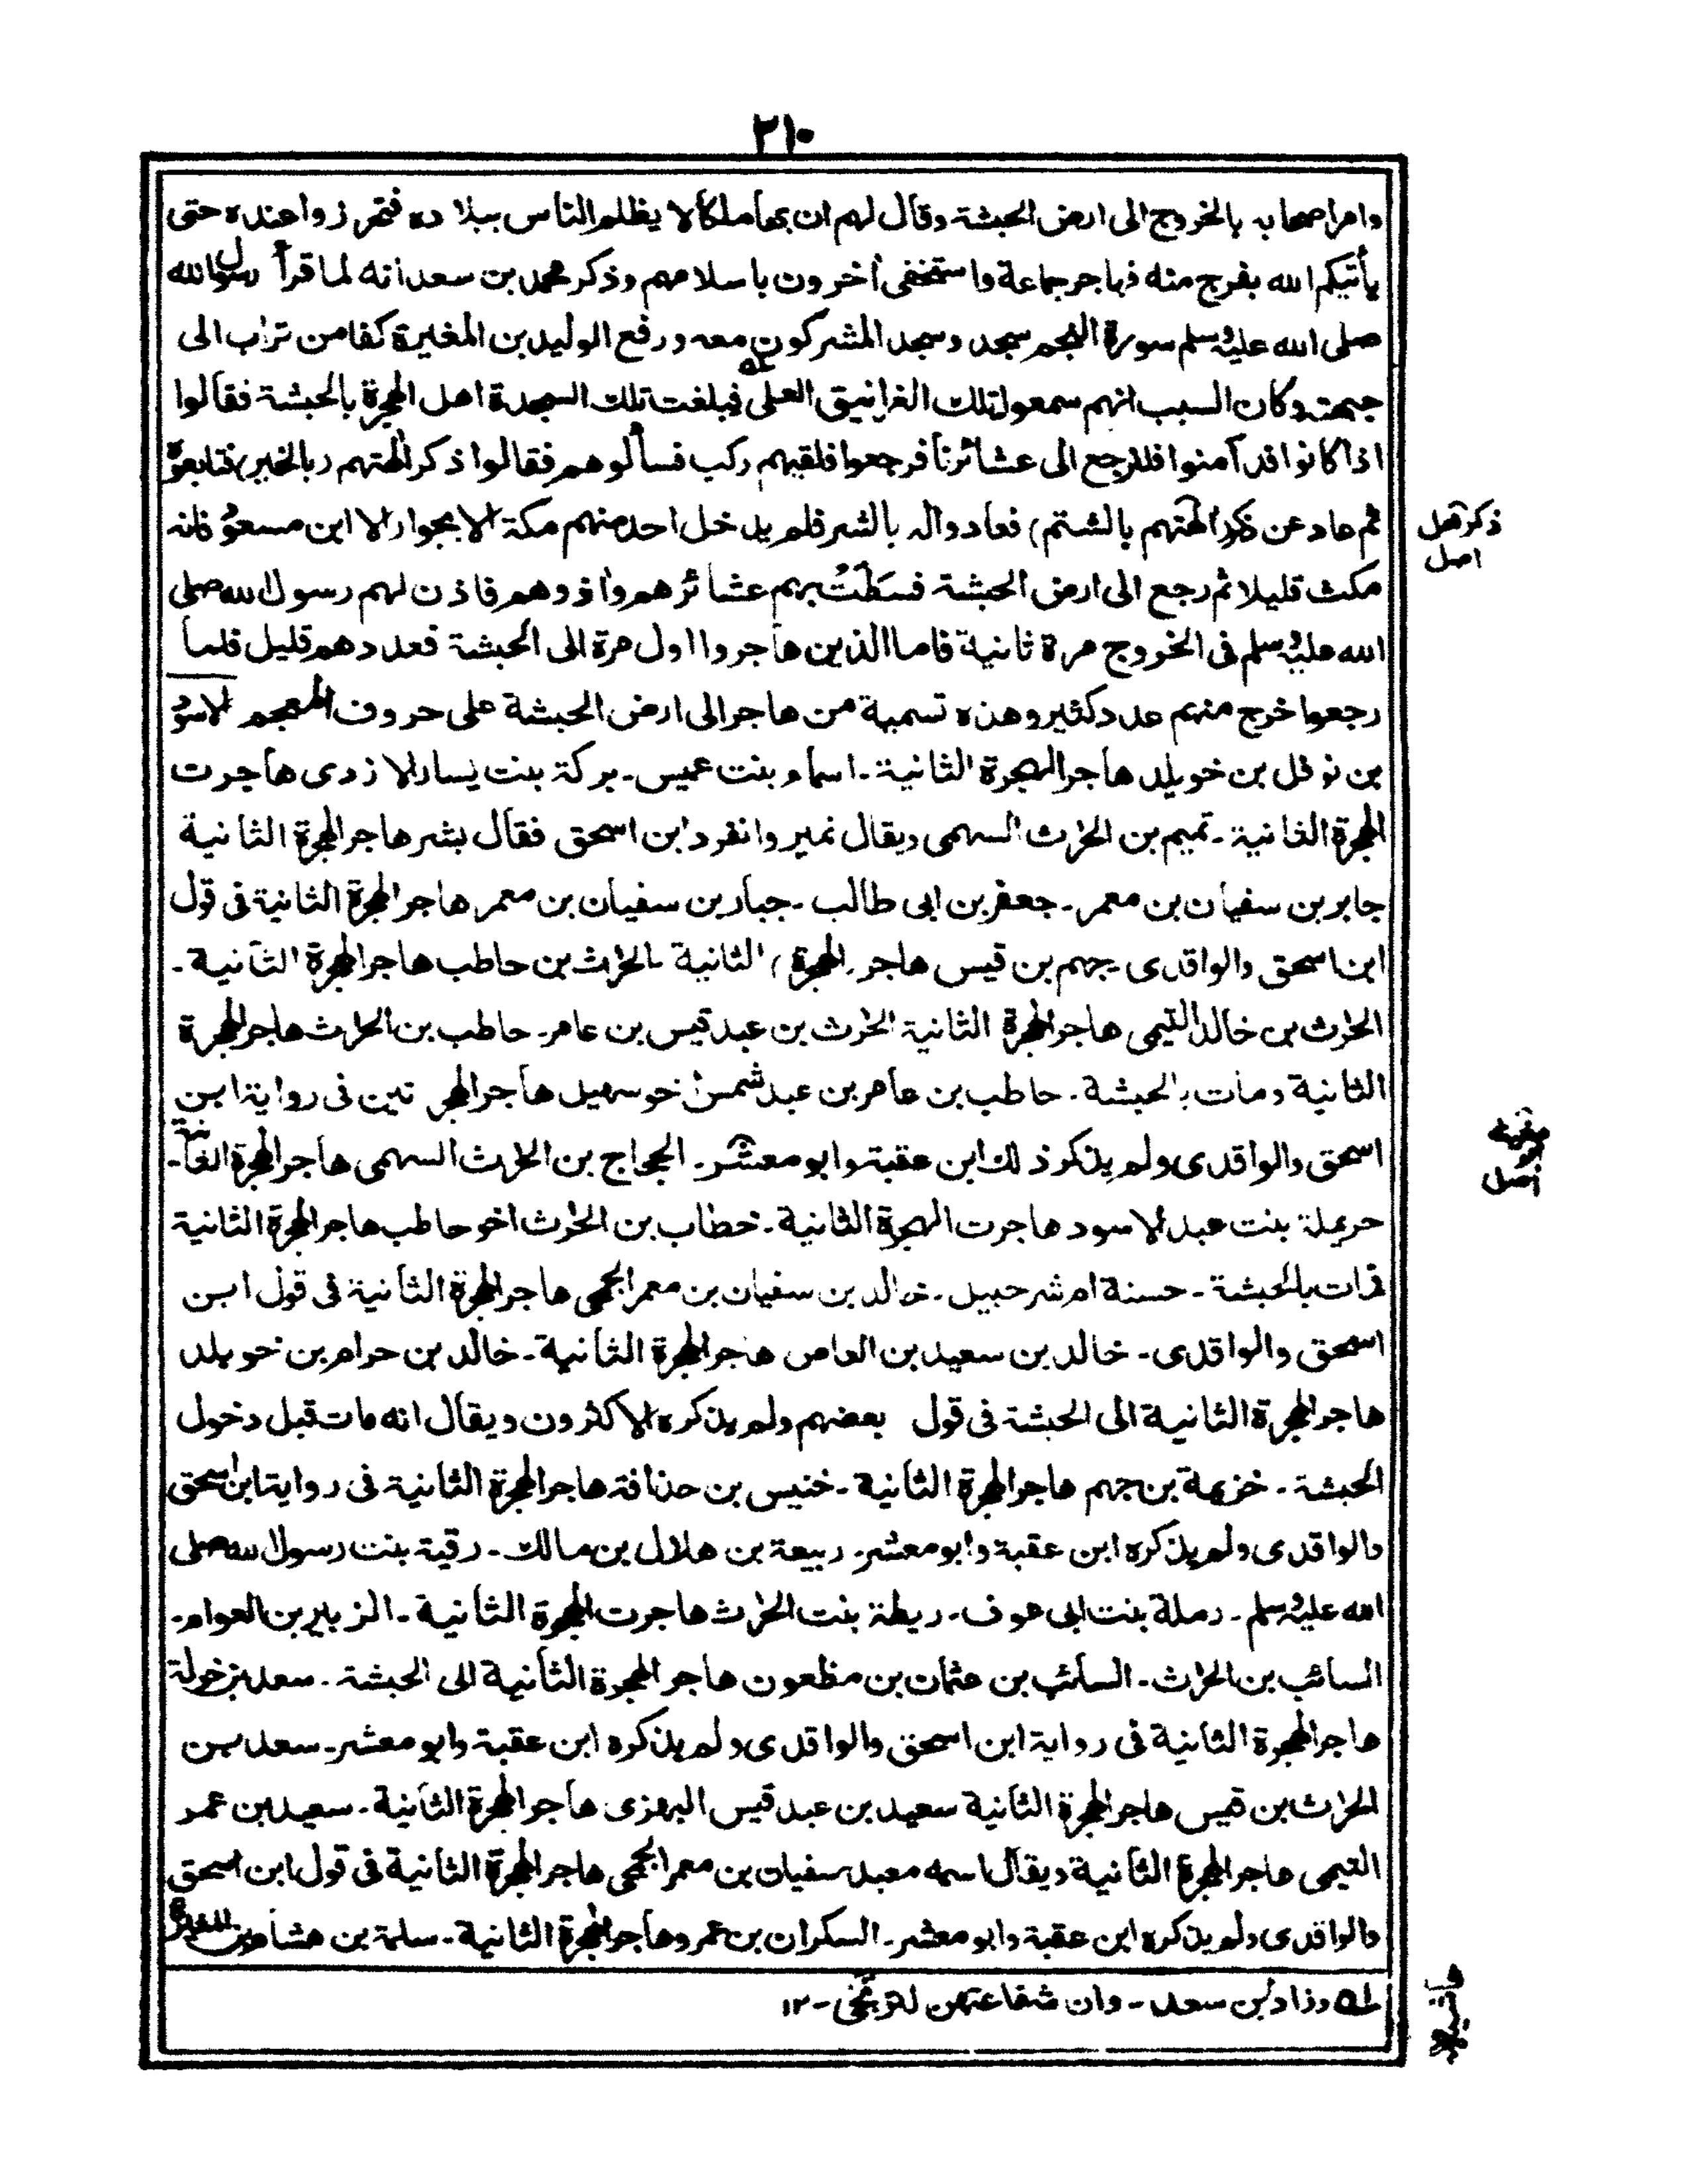 ٢١٠
وامر اصحابه بالخروج الى ارض الحبشة وقال لهم ان بها ملكا لا يظلم الناس ببلاده فتحرزوا عنده حتى
يأتيكم الله بفرج منه فهاجر جماعة واستخفى آخرون باسلامهم وذكر محمد بن سعد انه لما قرأ رسول الله
صلى الله عليه وسلم سورة النجم سجد وسجد المشركون معه ورفع الوليد بن المغيرة كفا من تراب الى
جبهته وكان السبب انهم سمعوا تلك الغرانيق العلى فبلغت تلك السجدة اهل الهجرة بالحبشة فقالوا
اذا كانوا قد آمنوا فلنرجع الى عشائرنا فرجعوا فلقيهم ركب فسألوهم فقالوا ذكر الهتهم (بالخير) فتابعوه
ثم عاد عن ذكر الهتهم بالشتم) فعادوا له بالشر فلم يدخل احد منهم مكة الا بجوار الا ابن مسعود فانه
مكث قليلا ثم رجع الى ارض الحبشة فسطت بهم عشائرهم واذوهم فاذن لهم رسول الله صلى
الله عليه وسلم فى الخروج مرة ثانية فاما الذين هاجروا اول مرة الى الحبشة فعددهم قليل فلما
رجعوا خرج منهم عدد كثير وهذه تسمية من هاجر الى ارض الحبشة على حروف المعجم الاسود
بن نوفل بن خويلد هاجر الهجرة الثانية - اسماء بنت عميس - بركة بنت يسار الازدى هاجرت
الهجرة الثانية - تميم بن الحرث السهمى ويقال نمير وانفرد ابن اسحق فقال بشر هاجر الهجرة الثانية
جابر بن سفيان بن معمر - جعفر بن ابى طالب - جبار بن سفيان بن معمر هاجر الهجرة الثانية فى قول
ابن اسحق والواقدى - جهم بن قيس هاجر (الهجرة) الثانية - الحرث بن حاطب هاجر الهجرة الثانية -
الحرث بن خالد التيمى هاجر الهجرة الثانية الحرث بن عبد قيس بن عامر - حاطب بن الحرث هاجر الهجرة
الثانية ومات بالحبشة - حاطب بن عامر بن عبد شمس اخو سهيل هاجر الهجرتين فى رواية ابن
اسحق والواقدى ولم يذكر ذلك ابن عقبة وابو معشر - الحجاج بن الحرث السهمى هاجر الهجرة الثانية -
حريملة بنت عبد الاسود هاجرت الهجرة الثانية - خطاب بن الحرث اخو حاطب هاجر الهجرة الثانية
فمات بالحبشة - حسنة ام شرحبيل - خالد بن سفيان بن معمر الجمحى هاجر الهجرة الثانية فى قول ابن
اسحق والواقدى - خالد بن سعيد بن العاص هاجر الهجرة الثانية - خالد بن حرام بن خويلد
هاجر الهجرة الثانية الى الحبشة فى قول بعضهم ولم يذكره الاكثرون ويقال انه مات قبل دخول
الحبشة - خزيمة بن جهم هاجر الهجرة الثانية - خنيس بن حذافة هاجر الهجرة الثانية فى رواية ابن اسحق
والواقدى ولم يذكره ابن عقبة وابو معشر - ربيعة بن هلال بن مالك - رقية بنت رسول الله صلى
الله عليه وسلم - رملة بنت ابى عوف - ريطة بنت الحرث هاجرت الهجرة الثانية - الزبير بن العوام -
السائب بن الحرث - السائب بن عثمان بن مظعون هاجر الهجرة الثانية الى الحبشة - سعد بن خولة
هاجر الهجرة الثانية فى رواية ابن اسحق والواقدى ولم يذكره ابن عقبة وابو معشر - سعد بن
الحرث بن قيس هاجر الهجرة الثانية سعيد بن عبد قيس البهزى هاجر الهجرة الثانية - سعيد بن عمر
التيمى هاجر الهجرة الثانية ويقال اسمه معبد سفيان بن معمر الجمحى هاجر الهجرة الثانية فى قول ابن اسحق
والواقدى ولم يذكره ابن عقبة وابو معشر - السكران بن عمرو هاجر الهجرة الثانية - سلمة بن هشام بن المغيرة
له وزاد ابن سعد - وان شفاعتهن لترتجى - ١٢
ذكر
اصل
اصل